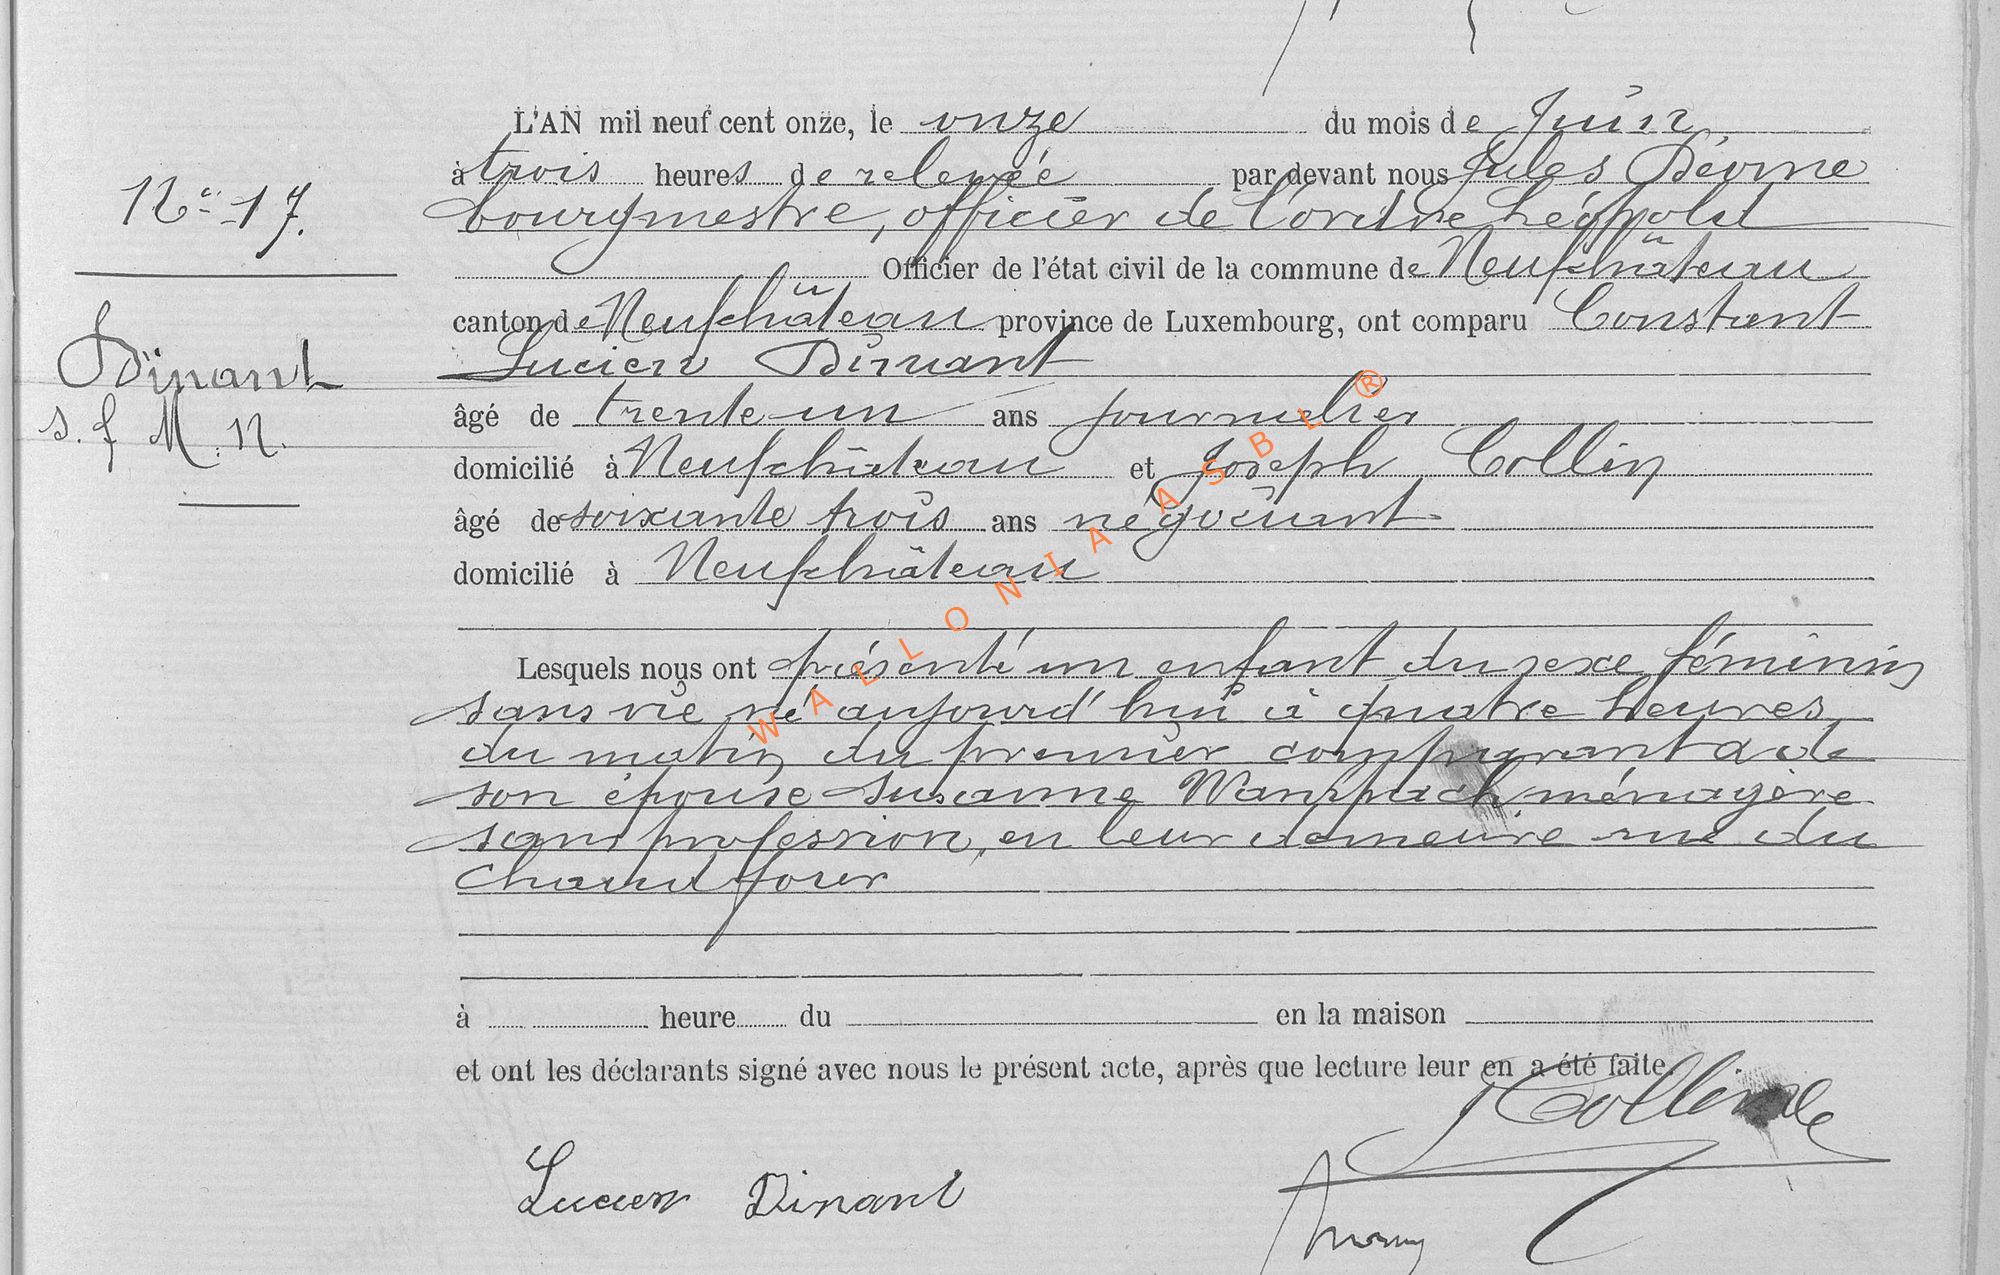 L'AN mil neuf cent onze, le onze du mois de Juin
à trois heures de relevée par devant nous Jules
N° 17.
bourgmestre, officier de l'ordre Léopold
Officier de l'état civil de la commune de Neufchâteau
canton de Neufchâteau province de Luxembourg, ont comparu Constant
Lucien Dinant
Dinant
âgé de trente un ans journalier
s. f M. N.
domicilié à Neufchâteau et Joseph Collin
âgé de soixante trois ans négociant
domicilié à Neufchâteau
WALLONIA ASBL ®
Lesquels nous ont présenté un enfant du sexe féminin
sans vie né aujourd'hui à quatre heures
du matin du premier comparant & de
son épouse Susanne ménagère
sans profession, en leur demeure rue du
Chaud four
à heure du en la maison
et ont les déclarants signé avec nous le présent acte, après que lecture leur en a été faite.
Lucien Dinant